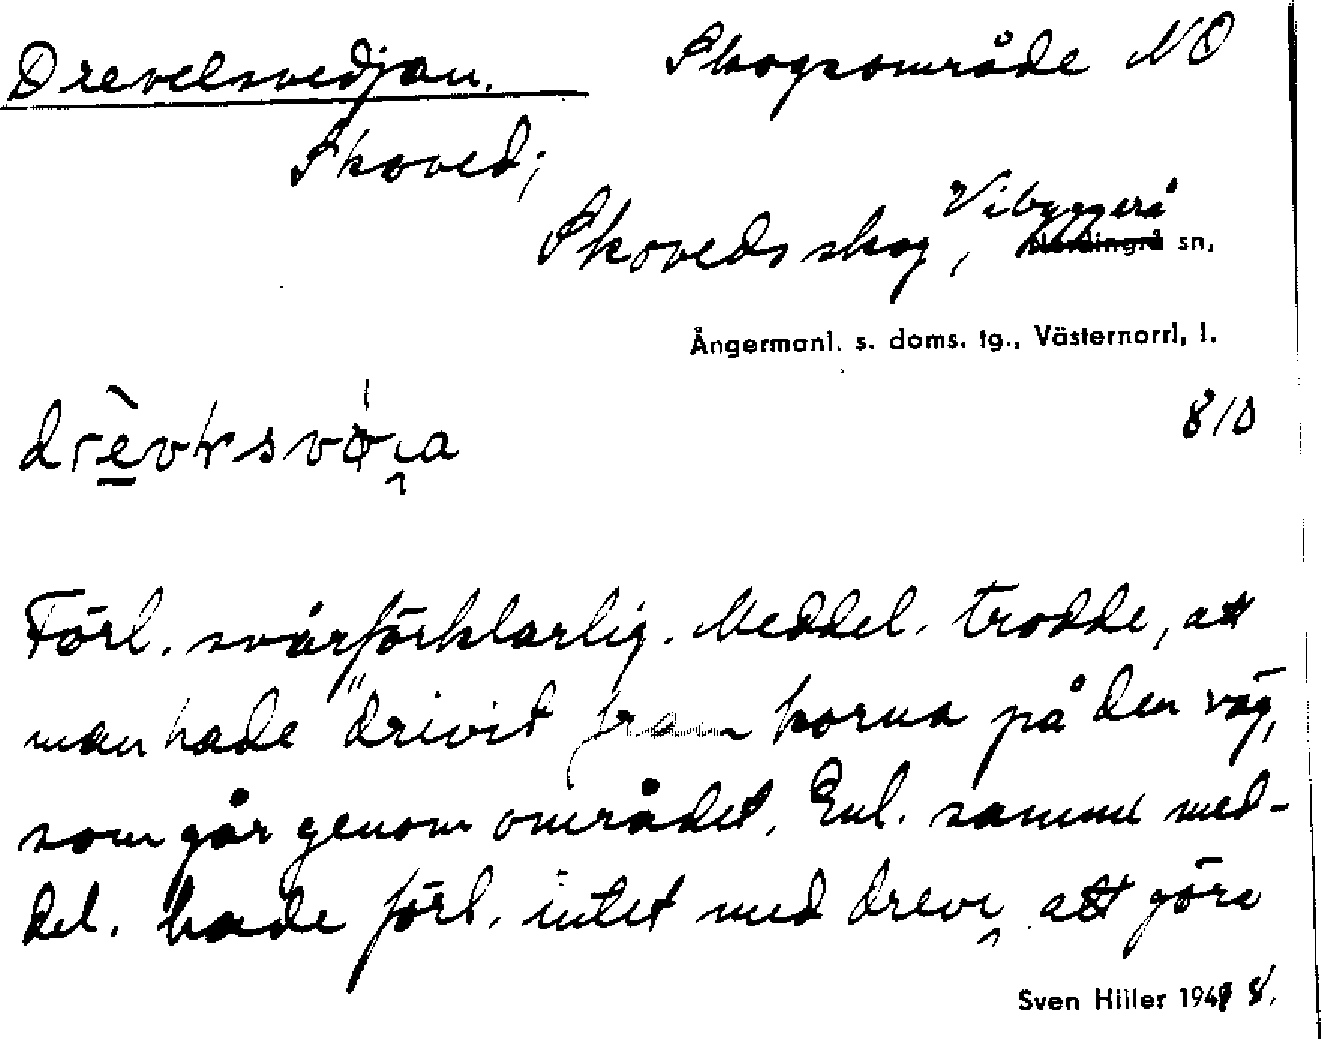 Drevelsvedjan. Skogsområde NO
Skoved;
Skoveds skog, Vibyggerå
Nordingrå sn,
Ångermanl. s. doms. tg., Västernorrl, l.
810
Förl. svårförklarlig. Meddel. trodde, att
man hade "drivit fram korna på den väg,
som går genom området. Enl. samme med-
del. hade förl. intet med att göra
Sven Hiller 1948.